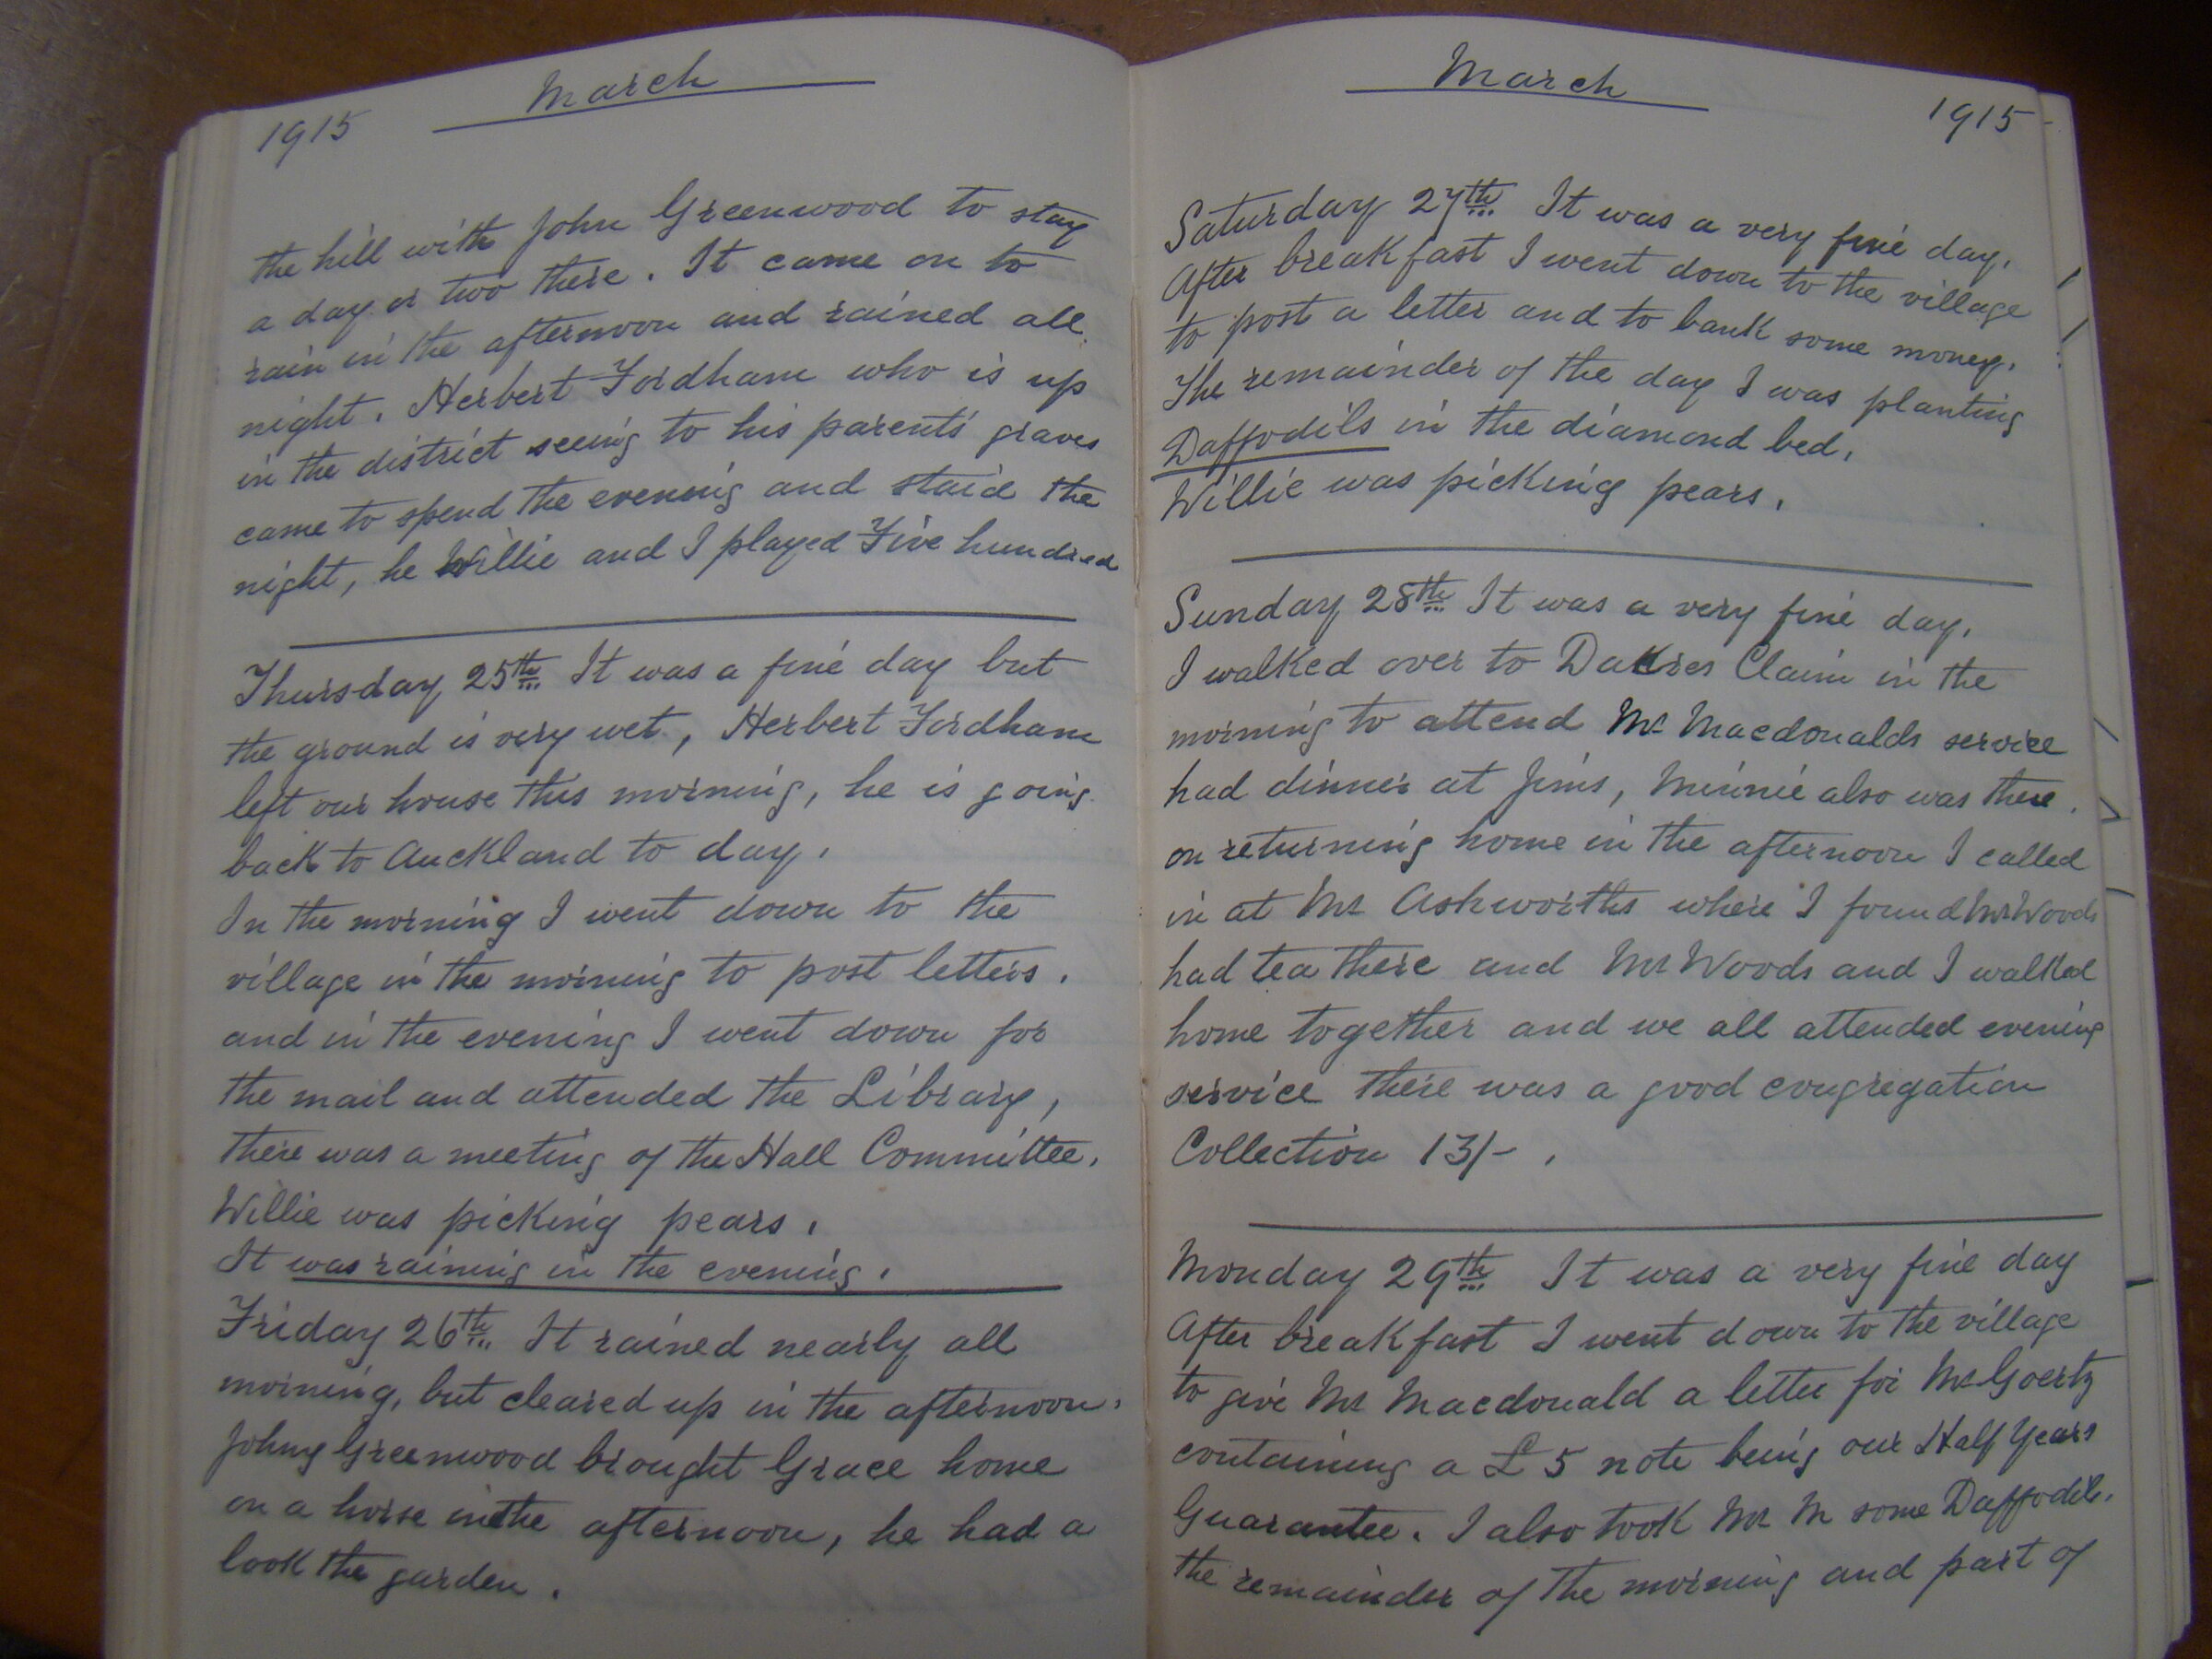 March
1915
the hill with John Greenwood to stay
a day or two there. It came on to
rain in the afternoon and rained all
night. Herbert Fordham who is up
in the district seeing to his parents' graves
came to spend the evening and staid the
night, he Willie and I played Five hundred
Thursday 25th It was a fine day but
the ground is very wet, Herbert Fordham
left our house this morning, he is going
back to Auckland to day.
In the morning I went down to the
village in the morning to post letters.
and in the evening I went down for
the mail and attended the Library,
there was a meeting of the Hall Committee.
Willie was picking pears.
It was raining in the evening.
Friday 26th It rained nearly all
morning, but cleared up in the afternoon.
Johny Greenwood brought Grace home
on a horse in the afternoon, he had a
look the garden.
March
1915
Saturday 27th It was a very fine day.
After breakfast I went down to the village
to post a letter and to bank some money.
The remainder of the day I was planting
Daffodils in the diamond bed.
Willie was picking pears.
Sunday 28th It was a very fine day.
I walked over to Claim in the
morning to attend Mr Macdonalds service
had dinner at Jims, Minnie also was there.
on returning home in the afternoon I called
in at Mr Ashworths where I found Mr Woods
had tea there and Mr Woods and I walked
home together and we all attended evening
service there was a good congregation
Collection 13/-.
Monday 29th It was a very fine day
After breakfast I went down to the village
to give Mr Macdonald a letter for Mr Goertz
containing a £5 note being our Half Years
Guarantee. I also took Mr M some Daffodils.
the remainder of the morning and part of